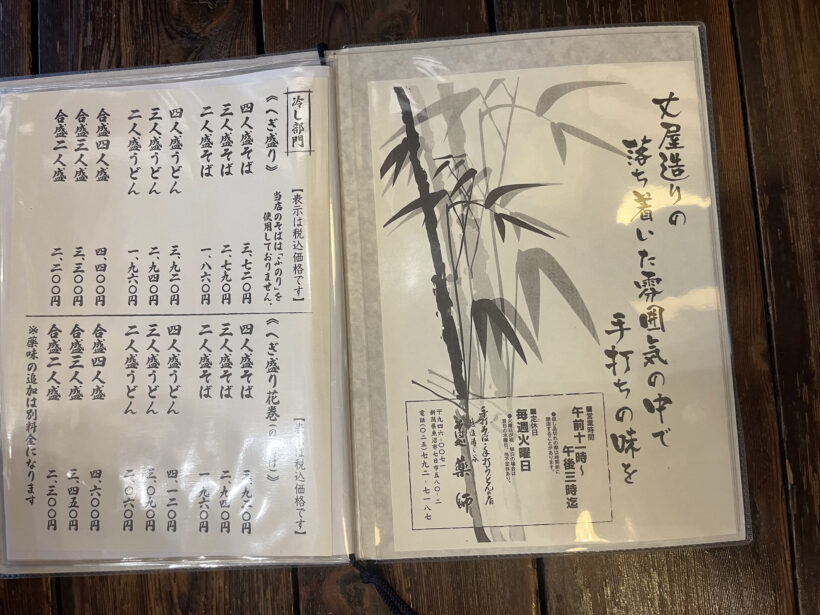 丈屋造りの
落ち着いた雰囲気の中で
手打ちの味を
■営業時間
午前十一時〜
午後三時迄
■定休日
毎週火曜日
手打そば・手打うどん店
そば処 薬師
〒九四六-〇〇七一
新潟県魚沼市七日市五八〇-二
電話(〇二五)七九二-七一八七
冷し部門
【表示は税込価格です】
《へぎ盛り》
当店のそばは「ふのり」を
使用しておりません。
四人盛そば 三、七二〇円
三人盛そば 二、七九〇円
二人盛そば 一、八六〇円
四人盛うどん 三、九二〇円
三人盛うどん 二、九四〇円
二人盛うどん 一、九六〇円
合盛四人盛 四、四〇〇円
合盛三人盛 三、三〇〇円
合盛二人盛 二、二〇〇円
《へぎ盛り花巻
は税込価格です】
四人盛そば 三、九二〇円
三人盛そば 二、九四〇円
二人盛そば 一、九六〇円
四人盛うどん 四、一二〇円
三人盛うどん 三、〇九〇円
二人盛うどん 二、〇六〇円
合盛四人盛 四、六〇〇円
合盛三人盛 三、四五〇円
合盛二人盛 二、三〇〇円
※薬味の追加は別料金になります